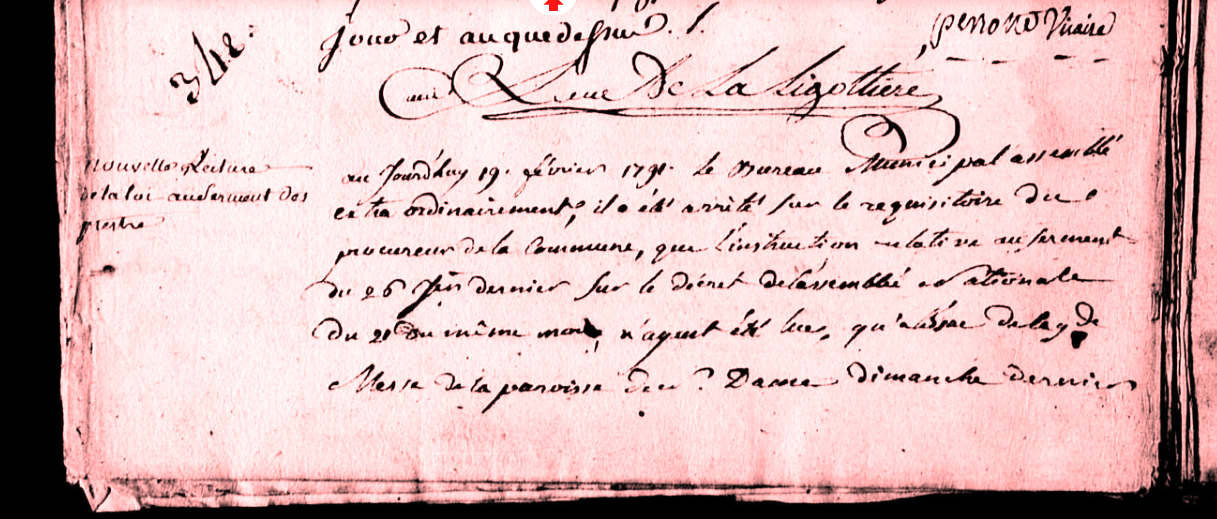 jour et an que dessus ./.
perrone Vicaire
De La Ligottiere
342.
nouvelle Lecture
de la loi au serment des
prestre
au Jourd'huy 19. février 1791. le Bureau Municipal assemblé
extra ordinairement, il a été arrêté sur le requisitoire du
procureur de la Commune, que l'instruction relative au serment
du 26 Jer dernier sur le décret de l'assemblé nationale
du 21 du même mois, n'ayant été lue, qu'a l'issue de la gde
Messe de la paroisse de n. Dame dimanche dernier